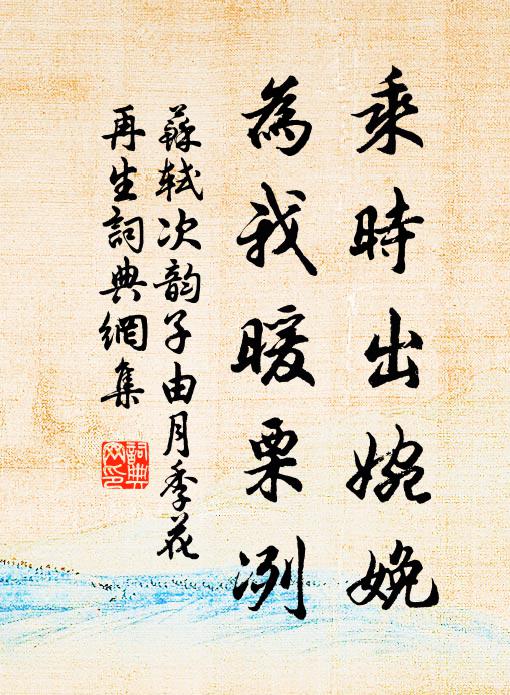 乘時出婉娩
為我暖栗冽
蘇軾次韵子由月季花
再生詞典網集
詞典網印